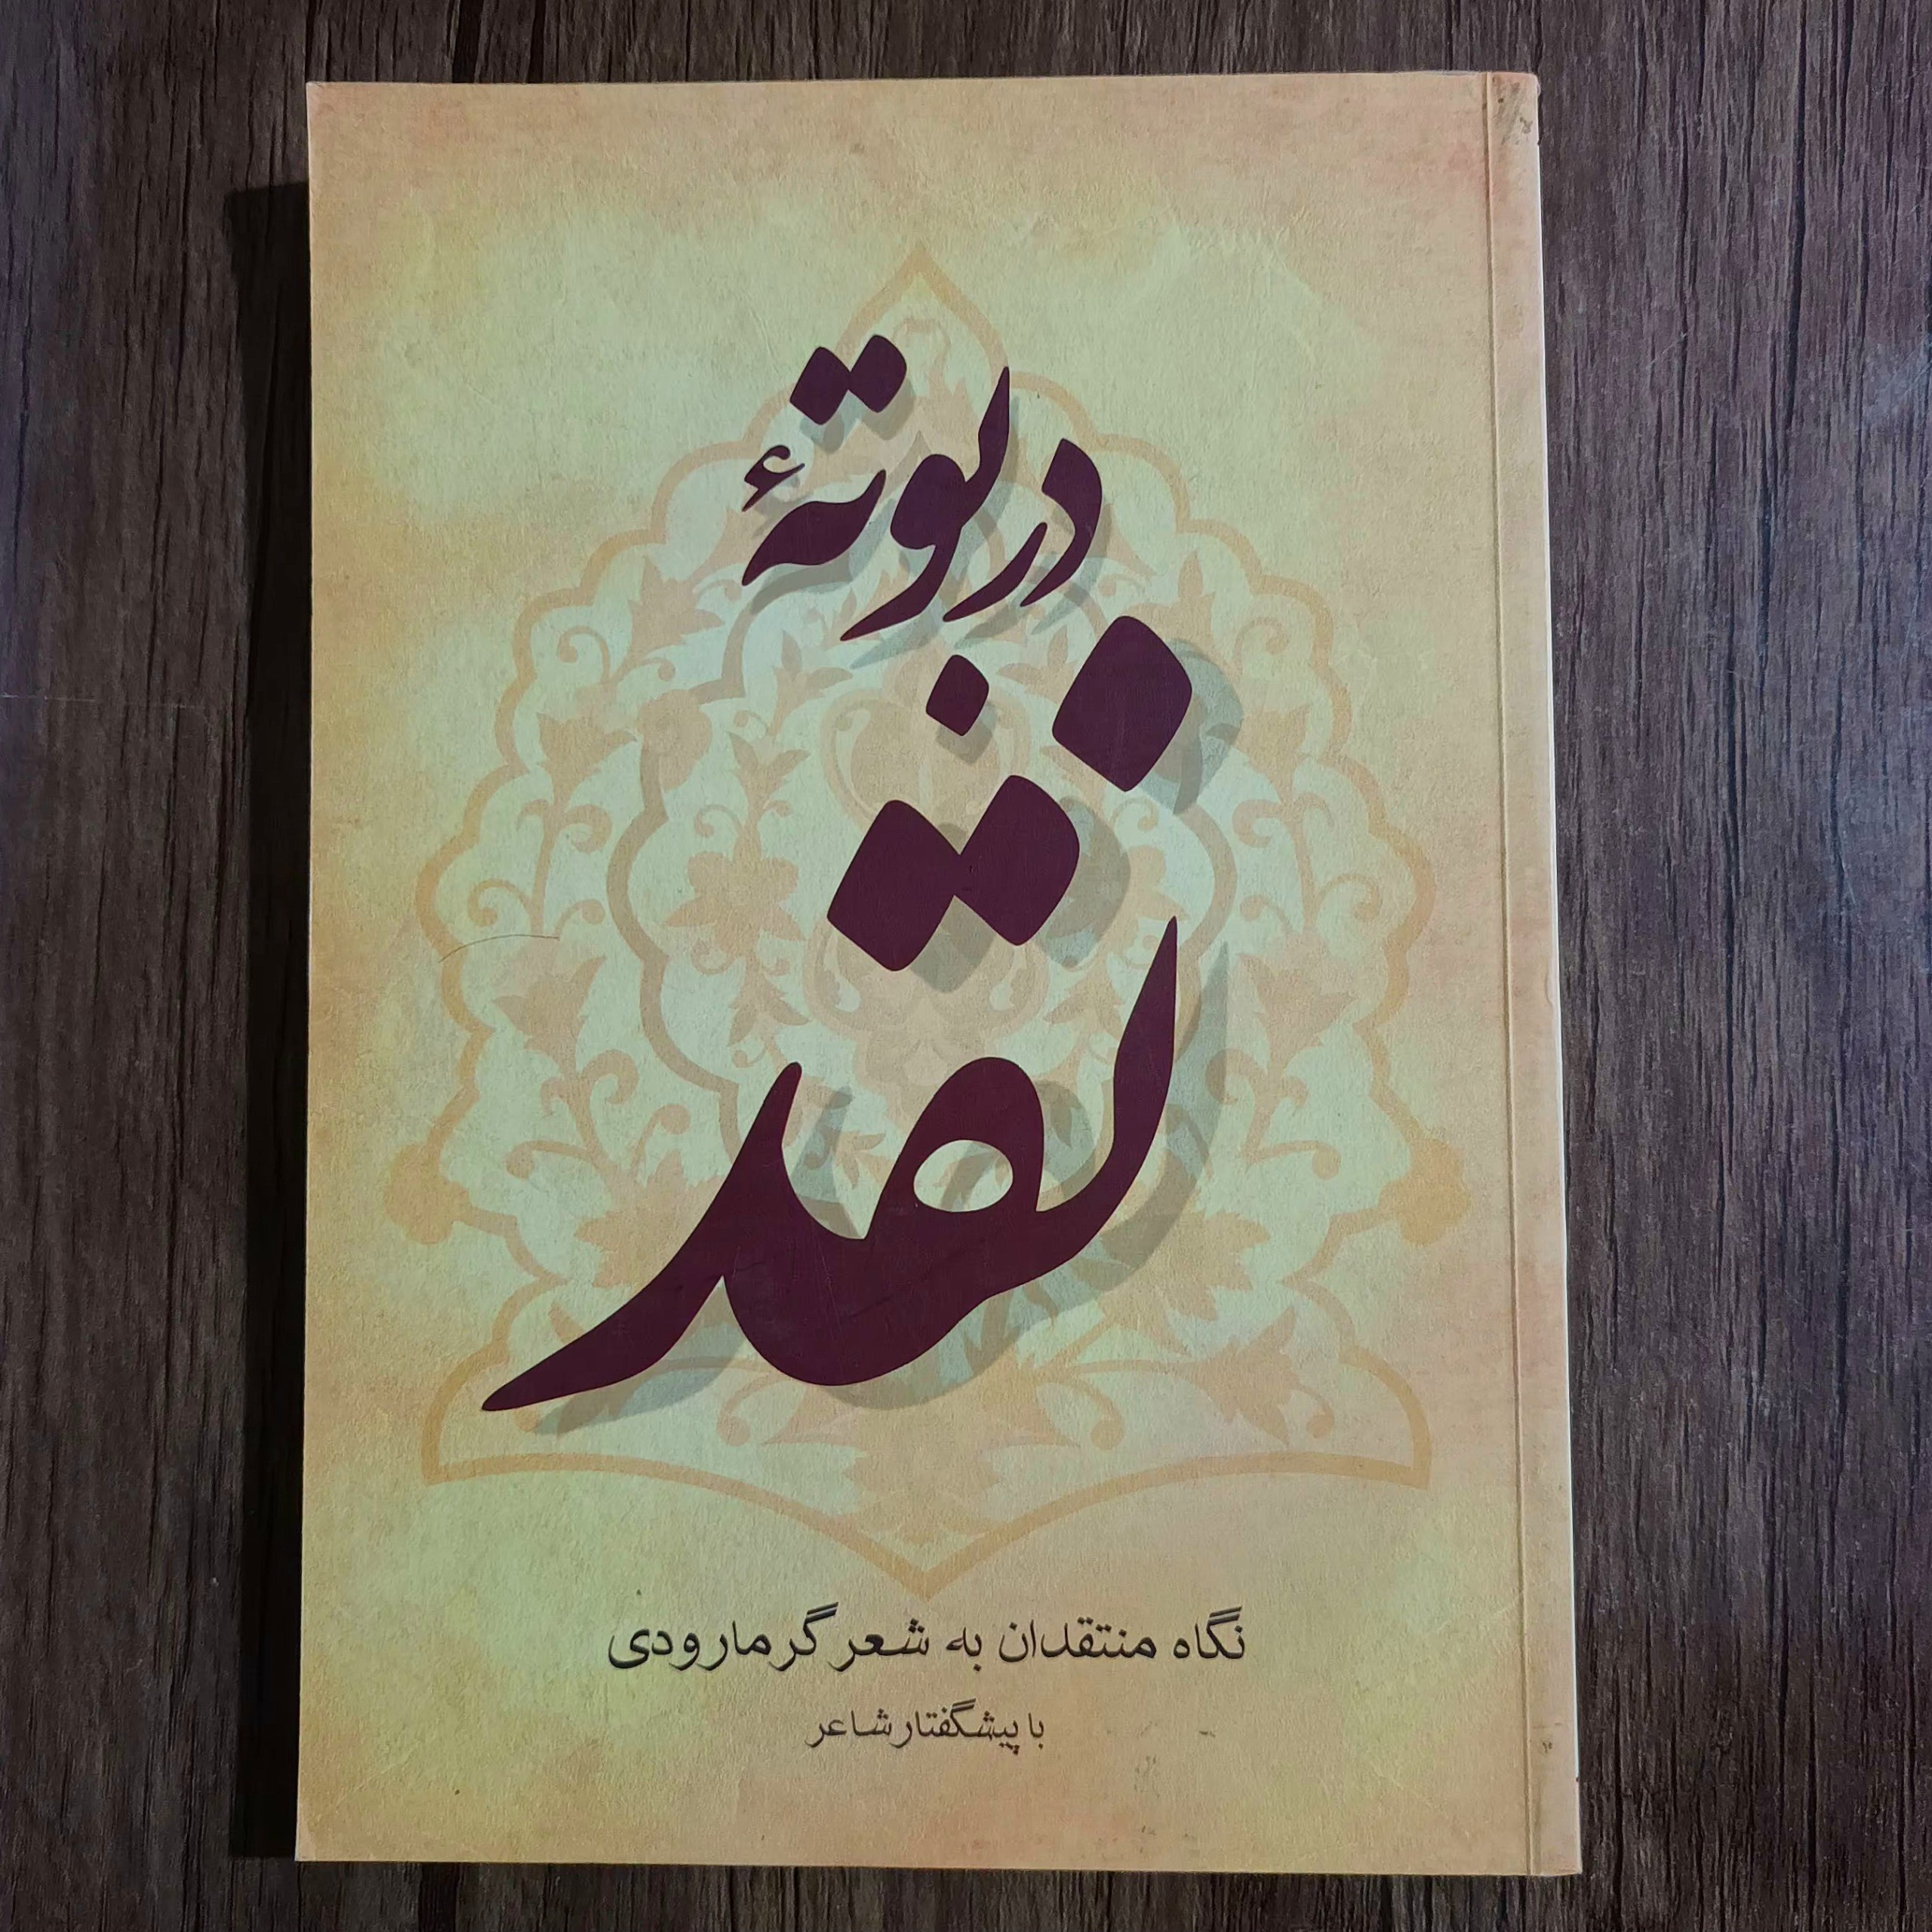 در بوتهٔ
نقد
نگاه منتقدان به شعر گرمارودی
با پیشگفتار شاعر